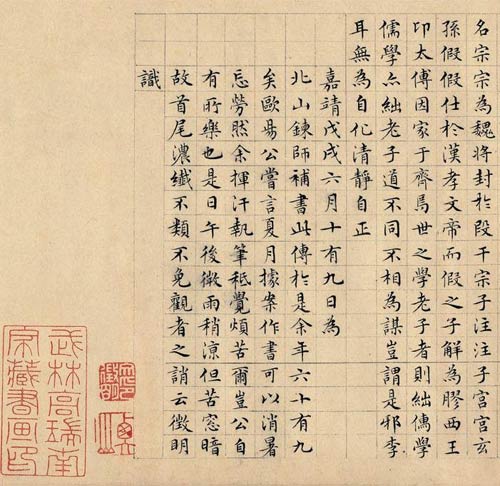 名宗宗為魏將封於段干宗子注注子宮宮玄
孫假假仕於漢孝文帝而假之子解為膠西王
印太傅因家于齊焉世之學老子者則絀儒學
儒學亦絀老子道不同不相為謀豈謂是邪李
耳無為自化清靜自正
嘉靖戊戌六月十有九日為
北山鍊師補書此傳於是余年六十有九
矣歐昜公嘗言夏月據案作書可以消暑
忘勞然余揮汗執筆秪覺煩苦爾豈公自
有所樂也是日午後微雨稍涼但苦窓暗
故首尾濃纖不類不免觀者之誚云徵明
識
武林高瑞南
家藏書畫印